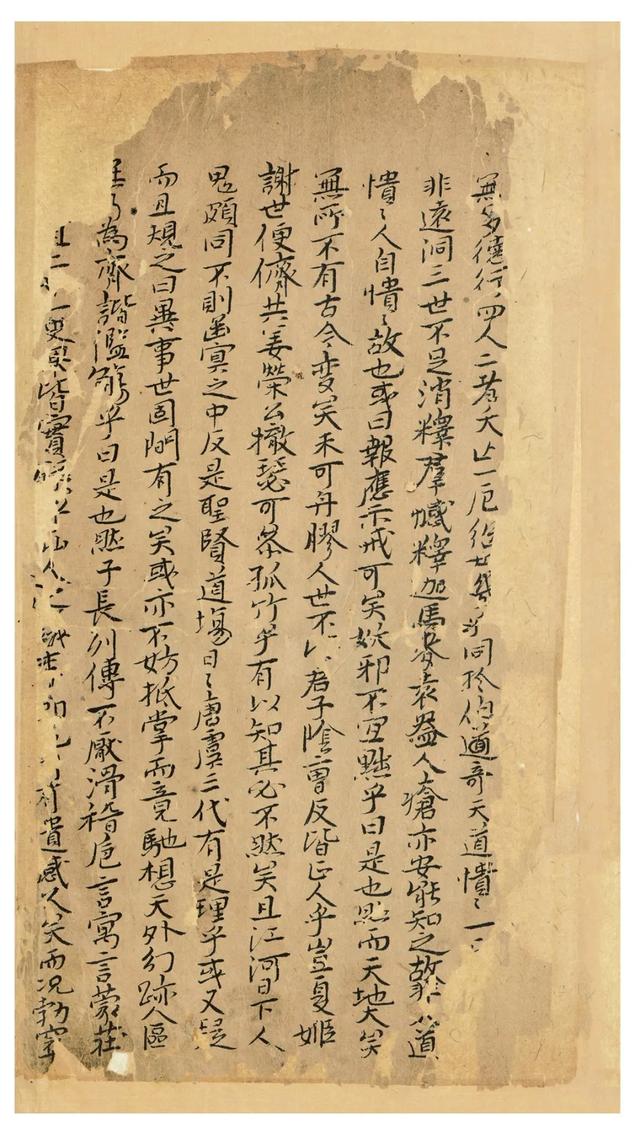 無多德行四人二者夭亡一厄繼母幾乎同於伯奇天道憒〻一
非遠洞三世不足消釋羣憾釋迦馬麥袁盎人瘡亦安能知之故非天道
憒〻人自憒〻故也或曰報應示戒可矣妖邪不宜黜乎曰是也然而天地大矣
無所不有古今變矣未可舟膠人世不皆君子陰曹反皆正人乎豈夏姬
謝世便儕共姜榮公撤瑟可參孤竹乎有以知其必不然矣且江河日下人
鬼頗同不則幽冥之中反是聖賢道塲日〻唐虞三代有是理乎或又疑
而且規之曰異事世固間有之矣或亦不妨抵掌而竟馳想天外幻跡人區
無乃為齊諧濫觴乎曰是也然子長列傳不厭滑稽卮言寓言蒙莊
且二十一史果皆實錄乎仙人之 遺憾久矣而況勃窣